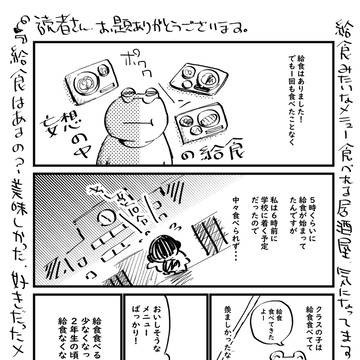 読者さん、お題ありがとうございます。
給食はありました！
でも一回も食べたことなく
ポワワ
妄想の中
の給食
5時くらいに
給食が始まって
たんですが
私は6時前に
学校に着く予定
だったので
中々食べられず…
クラスの子は
給食食べてて
羨ましかったな
給食
食べてきた
よー
おいしそうな
メニュー
ばっかり！
給食食べる
少なくなっ
2年生の頃
給食なくな
給食みたいなメニュー食べれる居酒屋気になってます
給食はあるの？美味しかった、好きだったメ